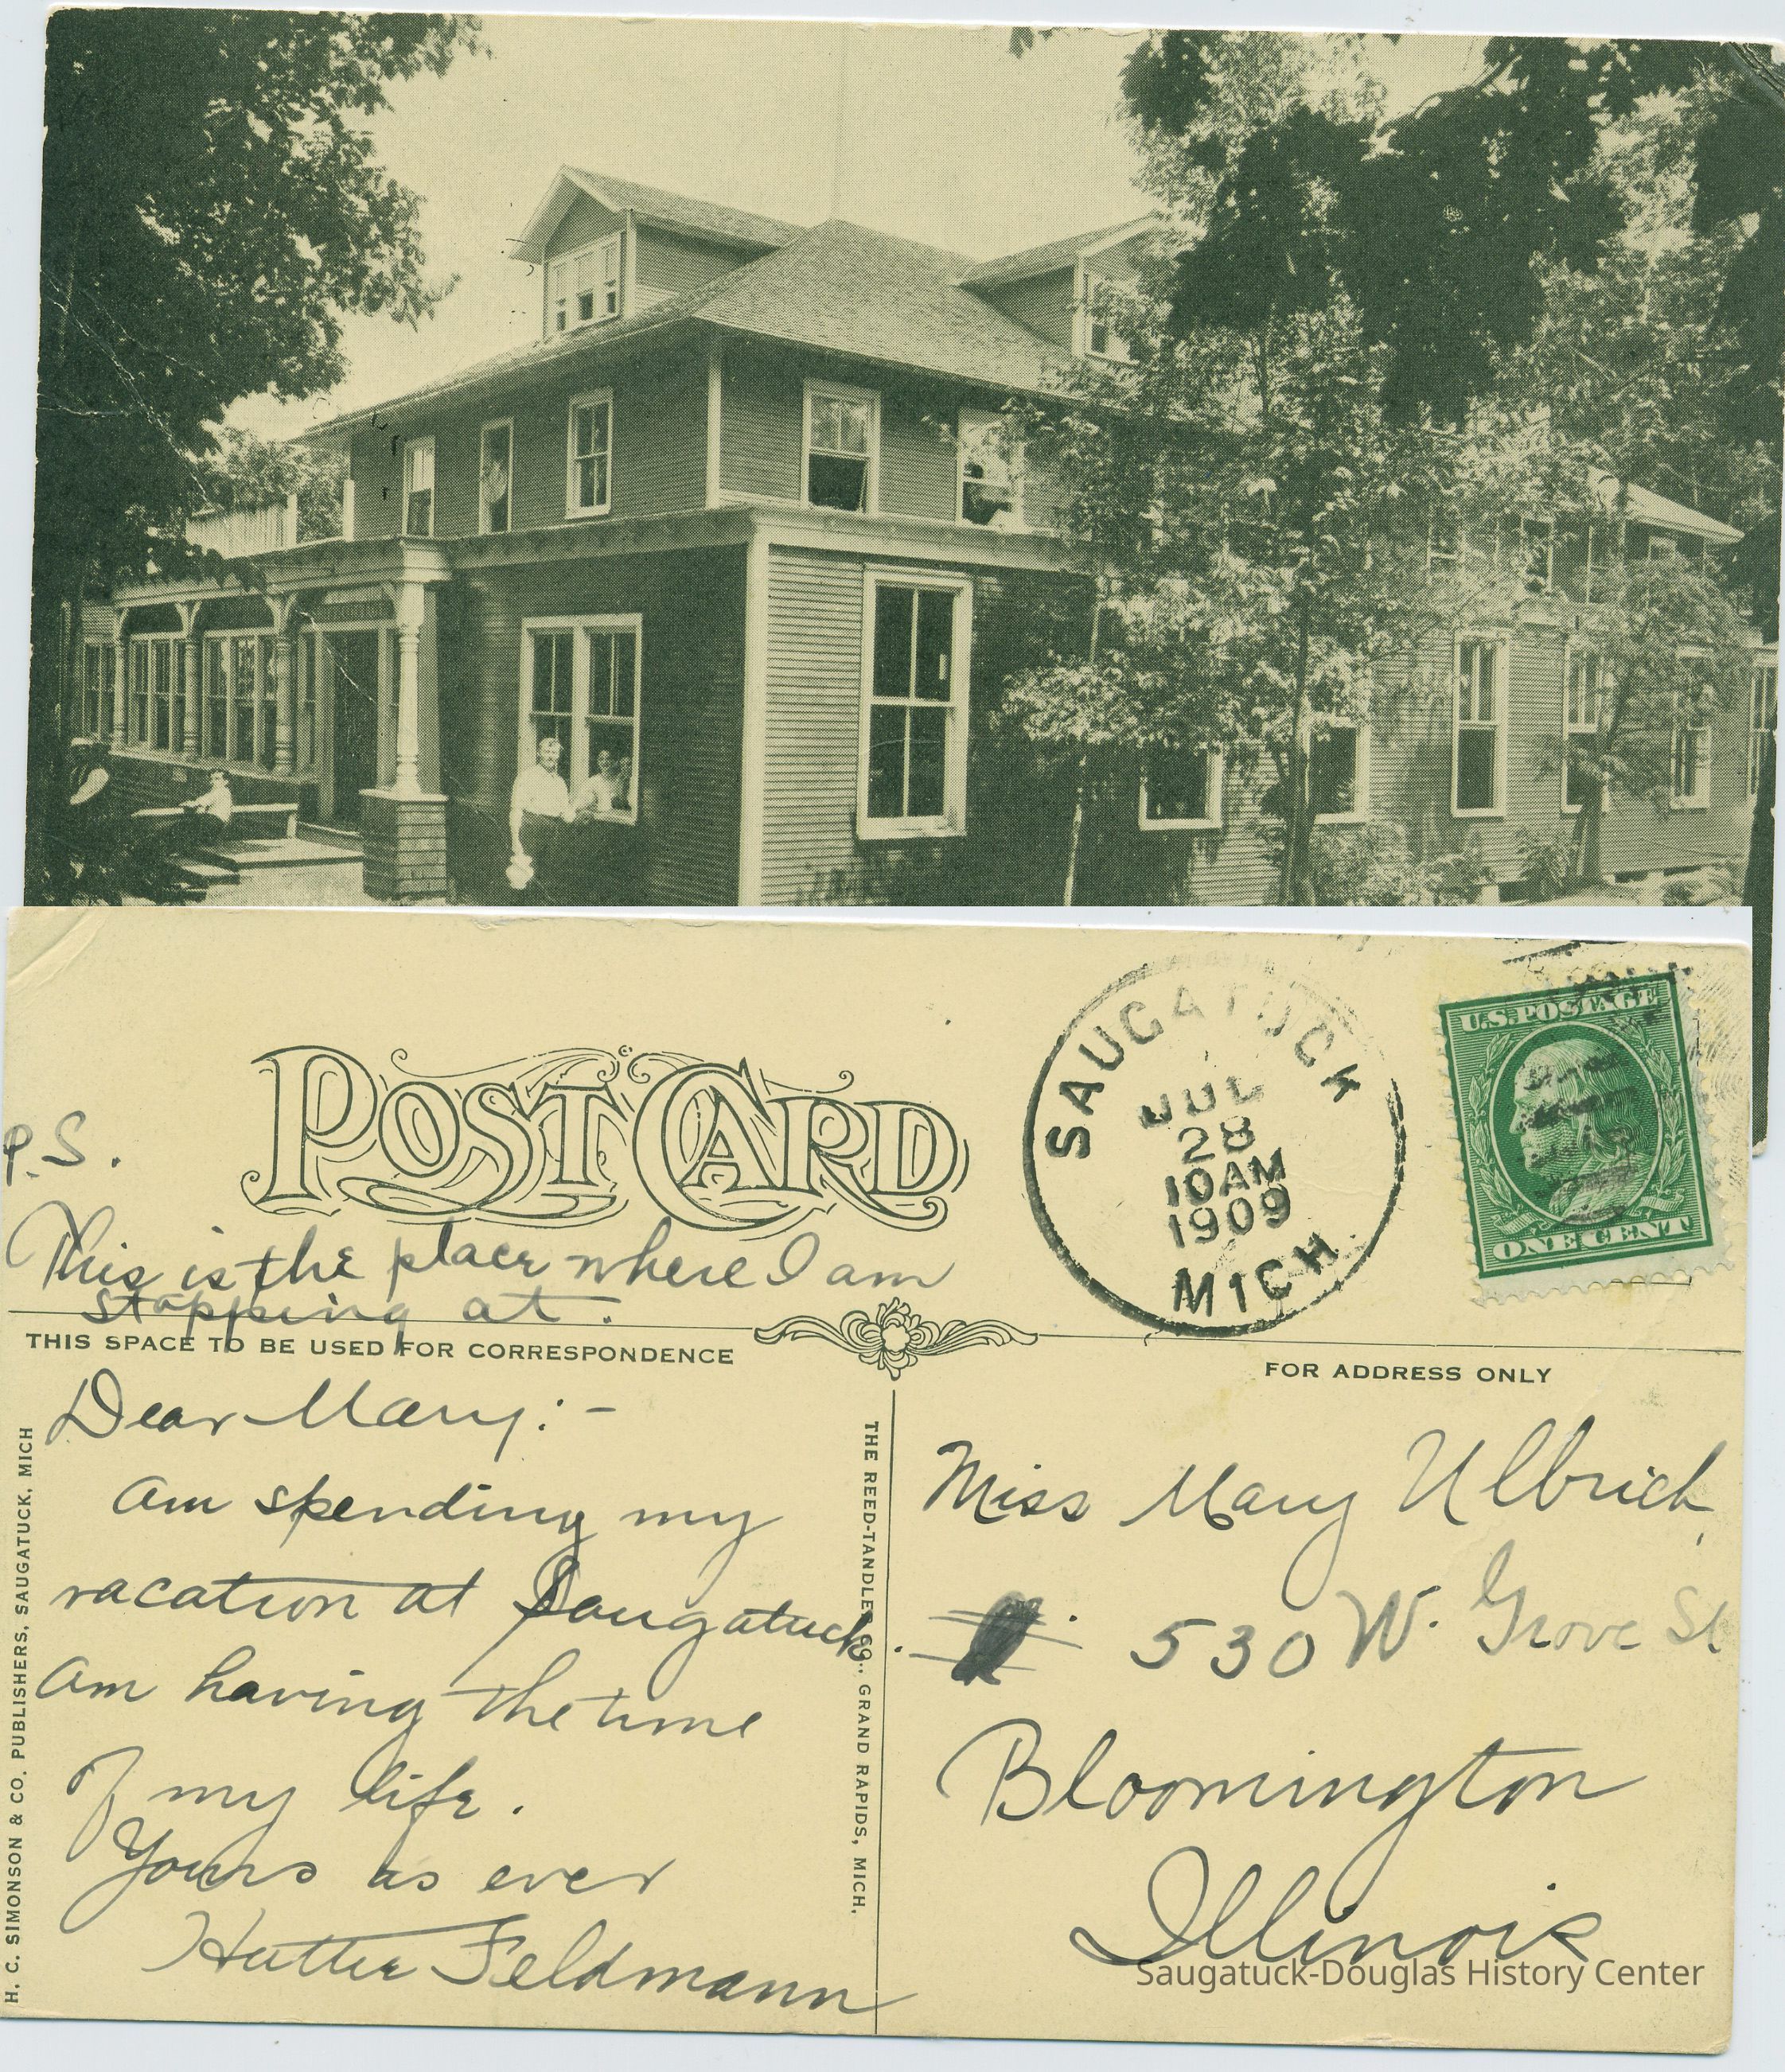 POST CARD
SAUGATUCK
JUL
28
10AM
1909
MICH.
U.S. POSTAGE
ONE CENT
P.S.
This is the place where I am
stopping at.
THIS SPACE TO BE USED FOR CORRESPONDENCE
FOR ADDRESS ONLY
Dear Mary:-
Am spending my
vacation at Saugatuck.
Am having the time
of my life.
Yours as ever
Feldmann
H. C. SIMONSON & CO. PUBLISHERS, SAUGATUCK, MICH
THE REED-TANDLER CO., GRAND RAPIDS, MICH.
Miss Mary Ulbrich
530 W. Grove St
Bloomington
Illinois
Saugatuck-Douglas History Center